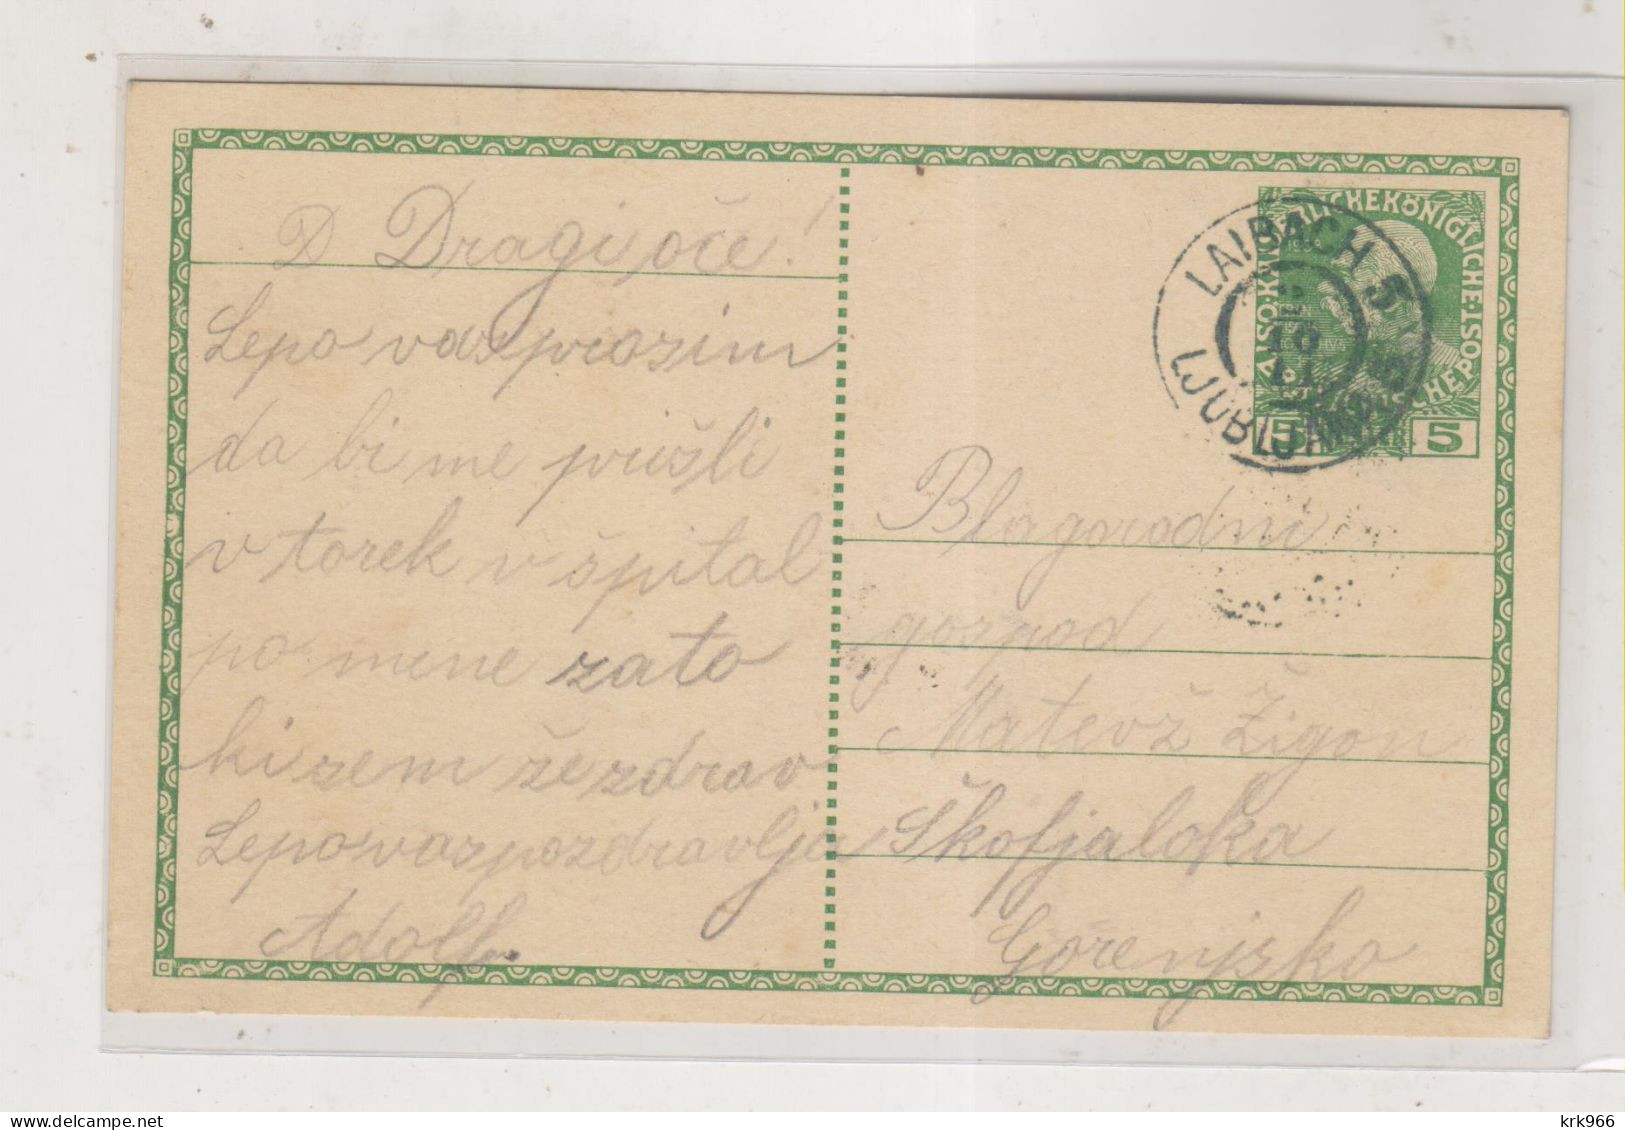 D Dragi oče!
Lepo vas prosim
da bi me prišli
v torek v špital
po mene zato
ki sem že zdrav
Lepo vas pozdravlja
Adolf.
LAIBACH 5
LJUBLJANA
5 5
Blagorodni
gospod
Matevž Žigon
Škofjaloka
Gorenjsko
krk966